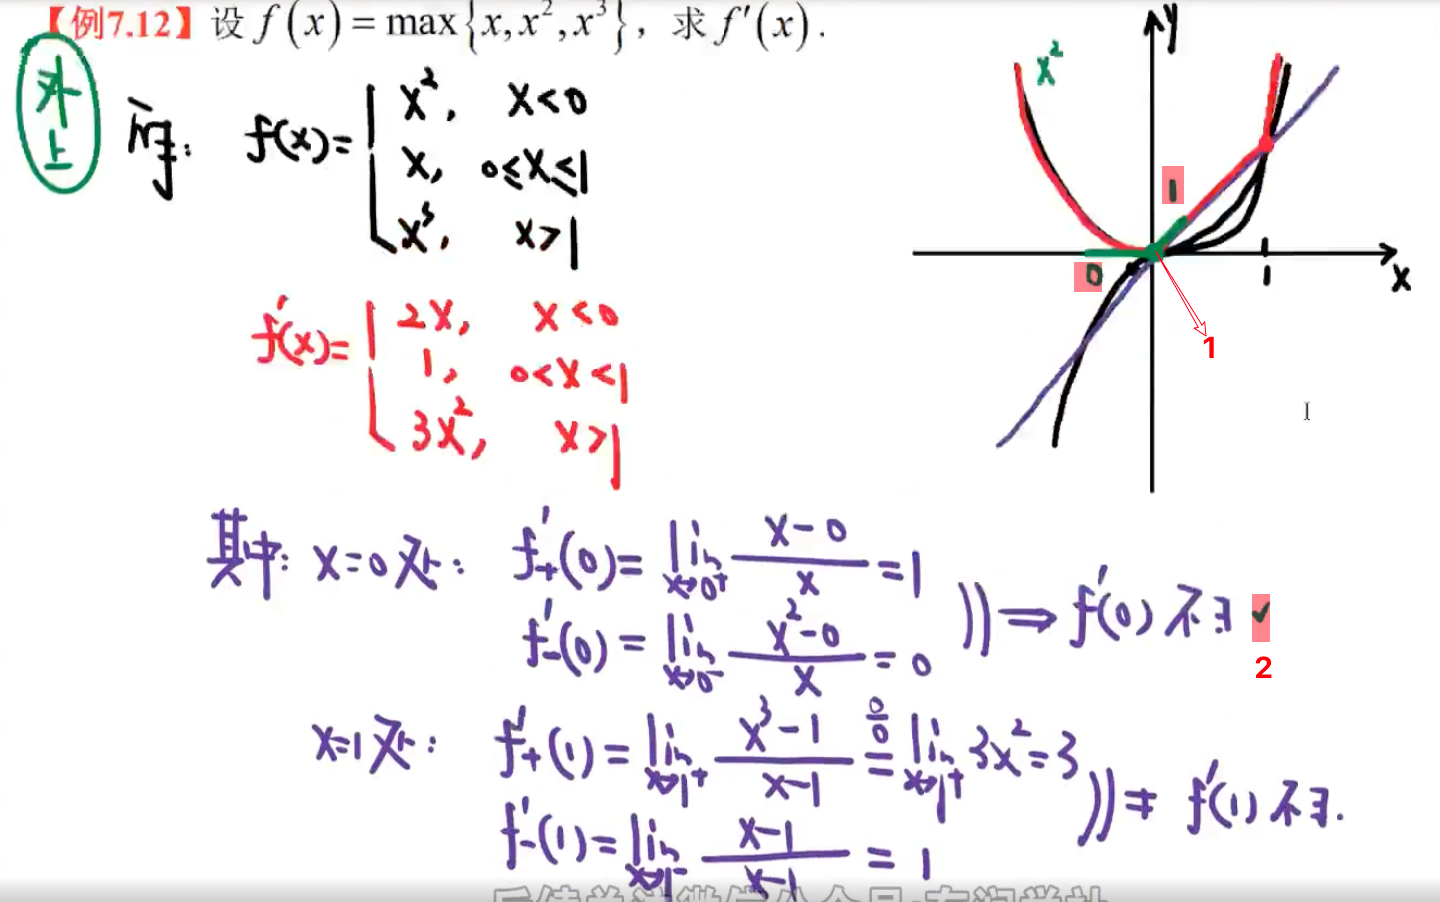 【例7.12】设 f(x) = max{x, x², x³}，求 f′(x).
外
上
f(x)= { x², x<0
x, 0≤x≤1
x³, x>1
f′(x)= { 2x, x<0
1, 0<x<1
3x², x>1
其中: x=0处: f′₊(0)= lim x→0⁺ (x-0)/x =1
f′₋(0)= lim x→0⁻ (x²-0)/x = 0
)) ⇒ f′(0) 不∃ ✓
2
x=1处: f′₊(1)= lim x→1⁺ (x³-1)/(x-1) 0/0 = lim x→1⁺ 3x²=3
f′₋(1)= lim x→1⁻ (x-1)/(x-1) = 1
)) ⇒ f′(1) 不∃.
y
x²
1
0
1
x
1